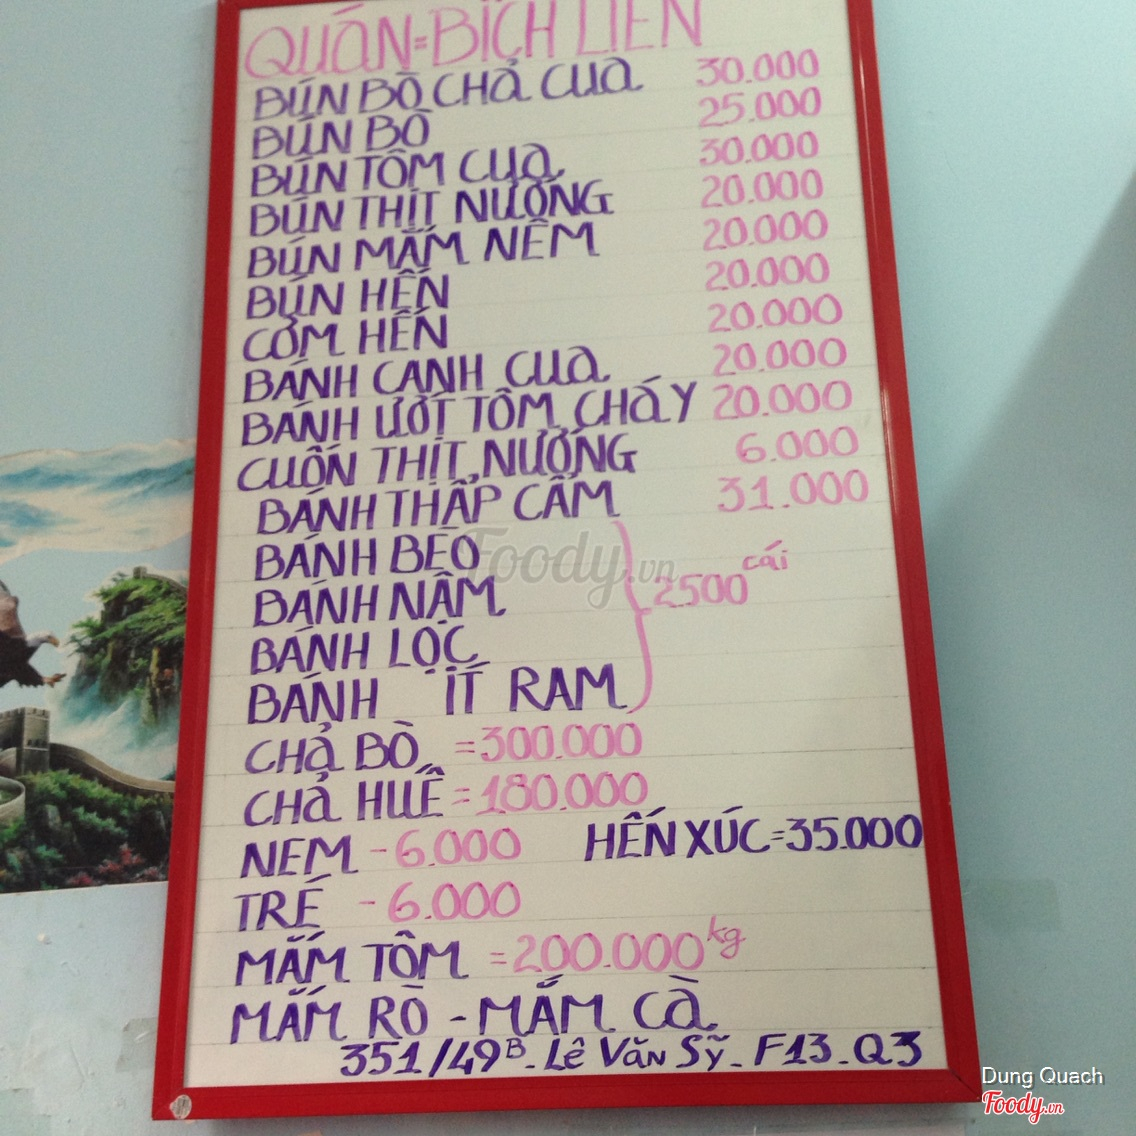 QUÁN=BÍCH LIÊN
BÚN BÒ CHẢ CUA 30.000
BÚN BÒ 25.000
BÚN TÔM CUA 30.000
BÚN THỊT NƯỚNG 20.000
BÚN MẮM NÊM 20.000
BÚN HẾN 20.000
CƠM HẾN 20.000
BÁNH CANH CUA 20.000
BÁNH ƯỚT TÔM CHÁY 20.000
CUỐN THỊT NƯỚNG 6.000
BÁNH THẬP CẨM 31.000
BÁNH BÈO
BÁNH NẬM
BÁNH LỘC
BÁNH ÍT RAM
2500 cái
CHẢ BÒ =300.000
CHẢ HUẾ =180.000
NEM -6.000 HẾN XÚC=35.000
TRÉ -6.000
MẮM TÔM =200.000 kg
MẮM RÒ - MẮM CÀ
351/49B_Lê Văn Sỹ_F13_Q3
Foody.vn
Dung Quach
Foody.vn